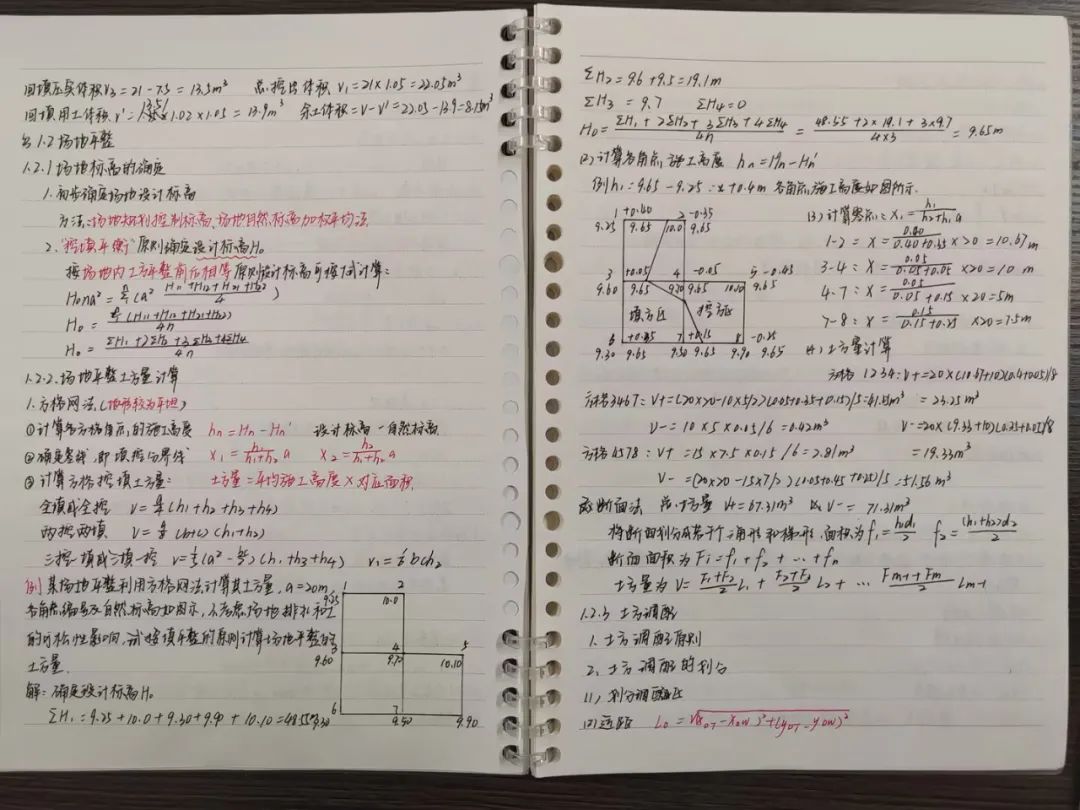 回填压实体积V3=21-7.5=13.5m³ 总挖出体积 V1=21×1.05=22.05m³
回填用土体积V'=×1.02×1.05=13.9m³ 余土体积=V-V'=22.05-13.9=8.15m³
1.2 场地平整
1.2.1 场地标高的确定
1.初步确定场地设计标高
方法:场地规划控制标高、场地自然标高加权平均法
2."挖填平衡"原则确定设计标高H0
按场地内土方平整前后相等原则设计标高可按下式计算:
H0na²=(a² (H11+H12+H21+H22)/4)
H0=(H11+H12+H21+H22)/4n
H0=(ΣH1+2ΣH2+3ΣH3+4ΣH4)/4n
1.2.2.场地平整土方量计算
1.方格网法(地形较为平坦)
①计算各方格角点的施工高度 hn=Hn-Hn' 设计标高-自然标高
②确定零线,即填挖分界线 X1=h1/(h1+h2) a X2=h2/(h1+h2) a
③计算方格挖填土方量: 土方量=平均施工高度×对应面积
全填或全挖 V=a²/4(h1+h2+h3+h4)
两挖两填 V=(b+c)(h1+h2)
三挖一填或三填一挖 V=(a²-)(h1+h3+h4) V1=bch2
例 某场地平整利用方格网法计算其土方量,a=20m,
各角点编号及自然标高如图示,不考虑场地排水和土
的可松性影响,试按填平整的原则计算场地平整的
土方量.
解:确定设计标高H0
ΣH1=9.25+10.0+9.30+9.90+10.10=48.55
1 2
9.25 10.0
3 4 5
9.60 9.70 10.10
6 7
9.30 9.50 9.90
ΣH2=9.6+9.5=19.1m
ΣH3=9.7 ΣH4=0
H0=(ΣH1+2ΣH2+3ΣH3+4ΣH4)/4n=(48.55+2×19.1+3×9.7)/(4×3)=9.65m
(2)计算各角点施工高度 hn=Hn-Hn'
例h1=9.65-9.25=+0.4m 各角点施工高度如图所示.
1 +0.40 2 -0.35
9.25 9.65 10.0 9.65
3 +0.05 4 -0.05 5 -0.45
9.60 9.65 9.70 9.65 10.10 9.65
填方区 挖方区
6 +0.35 7 +0.15 8 -0.25
9.30 9.65 9.50 9.65 9.90 9.65
(3)计算零点: X1=h1/(h2+h1) a
1-2=X=0.40/(0.40+0.35)×20=10.67m
3-4:X=0.05/(0.05+0.05)×20=10m
4-7:X=0.05/(0.05+0.15)×20=5m
7-8:X=0.15/(0.15+0.25)×20=7.5m
(4)土方量计算
方格1234:V+=20×(10.67+10)(0.4+0.05)/8
=23.25m³
方格3467:V+=(20×20-10×5/2)(0.05+0.35+0.15)/5=41.25m³
V-=10×5×0.05/6=0.42m³ V-=20×(9.33+10)(0.35+0.05)/8
=19.33m³
方格4578:V+=15×7.5×0.15/6=2.81m³
V-=(20×20-15×7/2)(0.05+0.45+0.25)/5=51.56m³
断面法 总土方量 V+=67.31m³ V-=71.31m³
将断面划分成若干个三角形和梯形,面积为f1=h1d1/2 f2=(h1+h2)d2/2
断面面积为Fi=f1+f2+…+fn
土方量为V=(F1+F2)/2 L1+(F2+F3)/2 L2+…(Fm-1+Fm)/2 Lm-1
1.2.3 土方调配
1.土方调配原则
2.土方调配的划分
(1)划分调配区
(2)运距 L0=√(X0T-X0W)²+(y0T-y0W)²